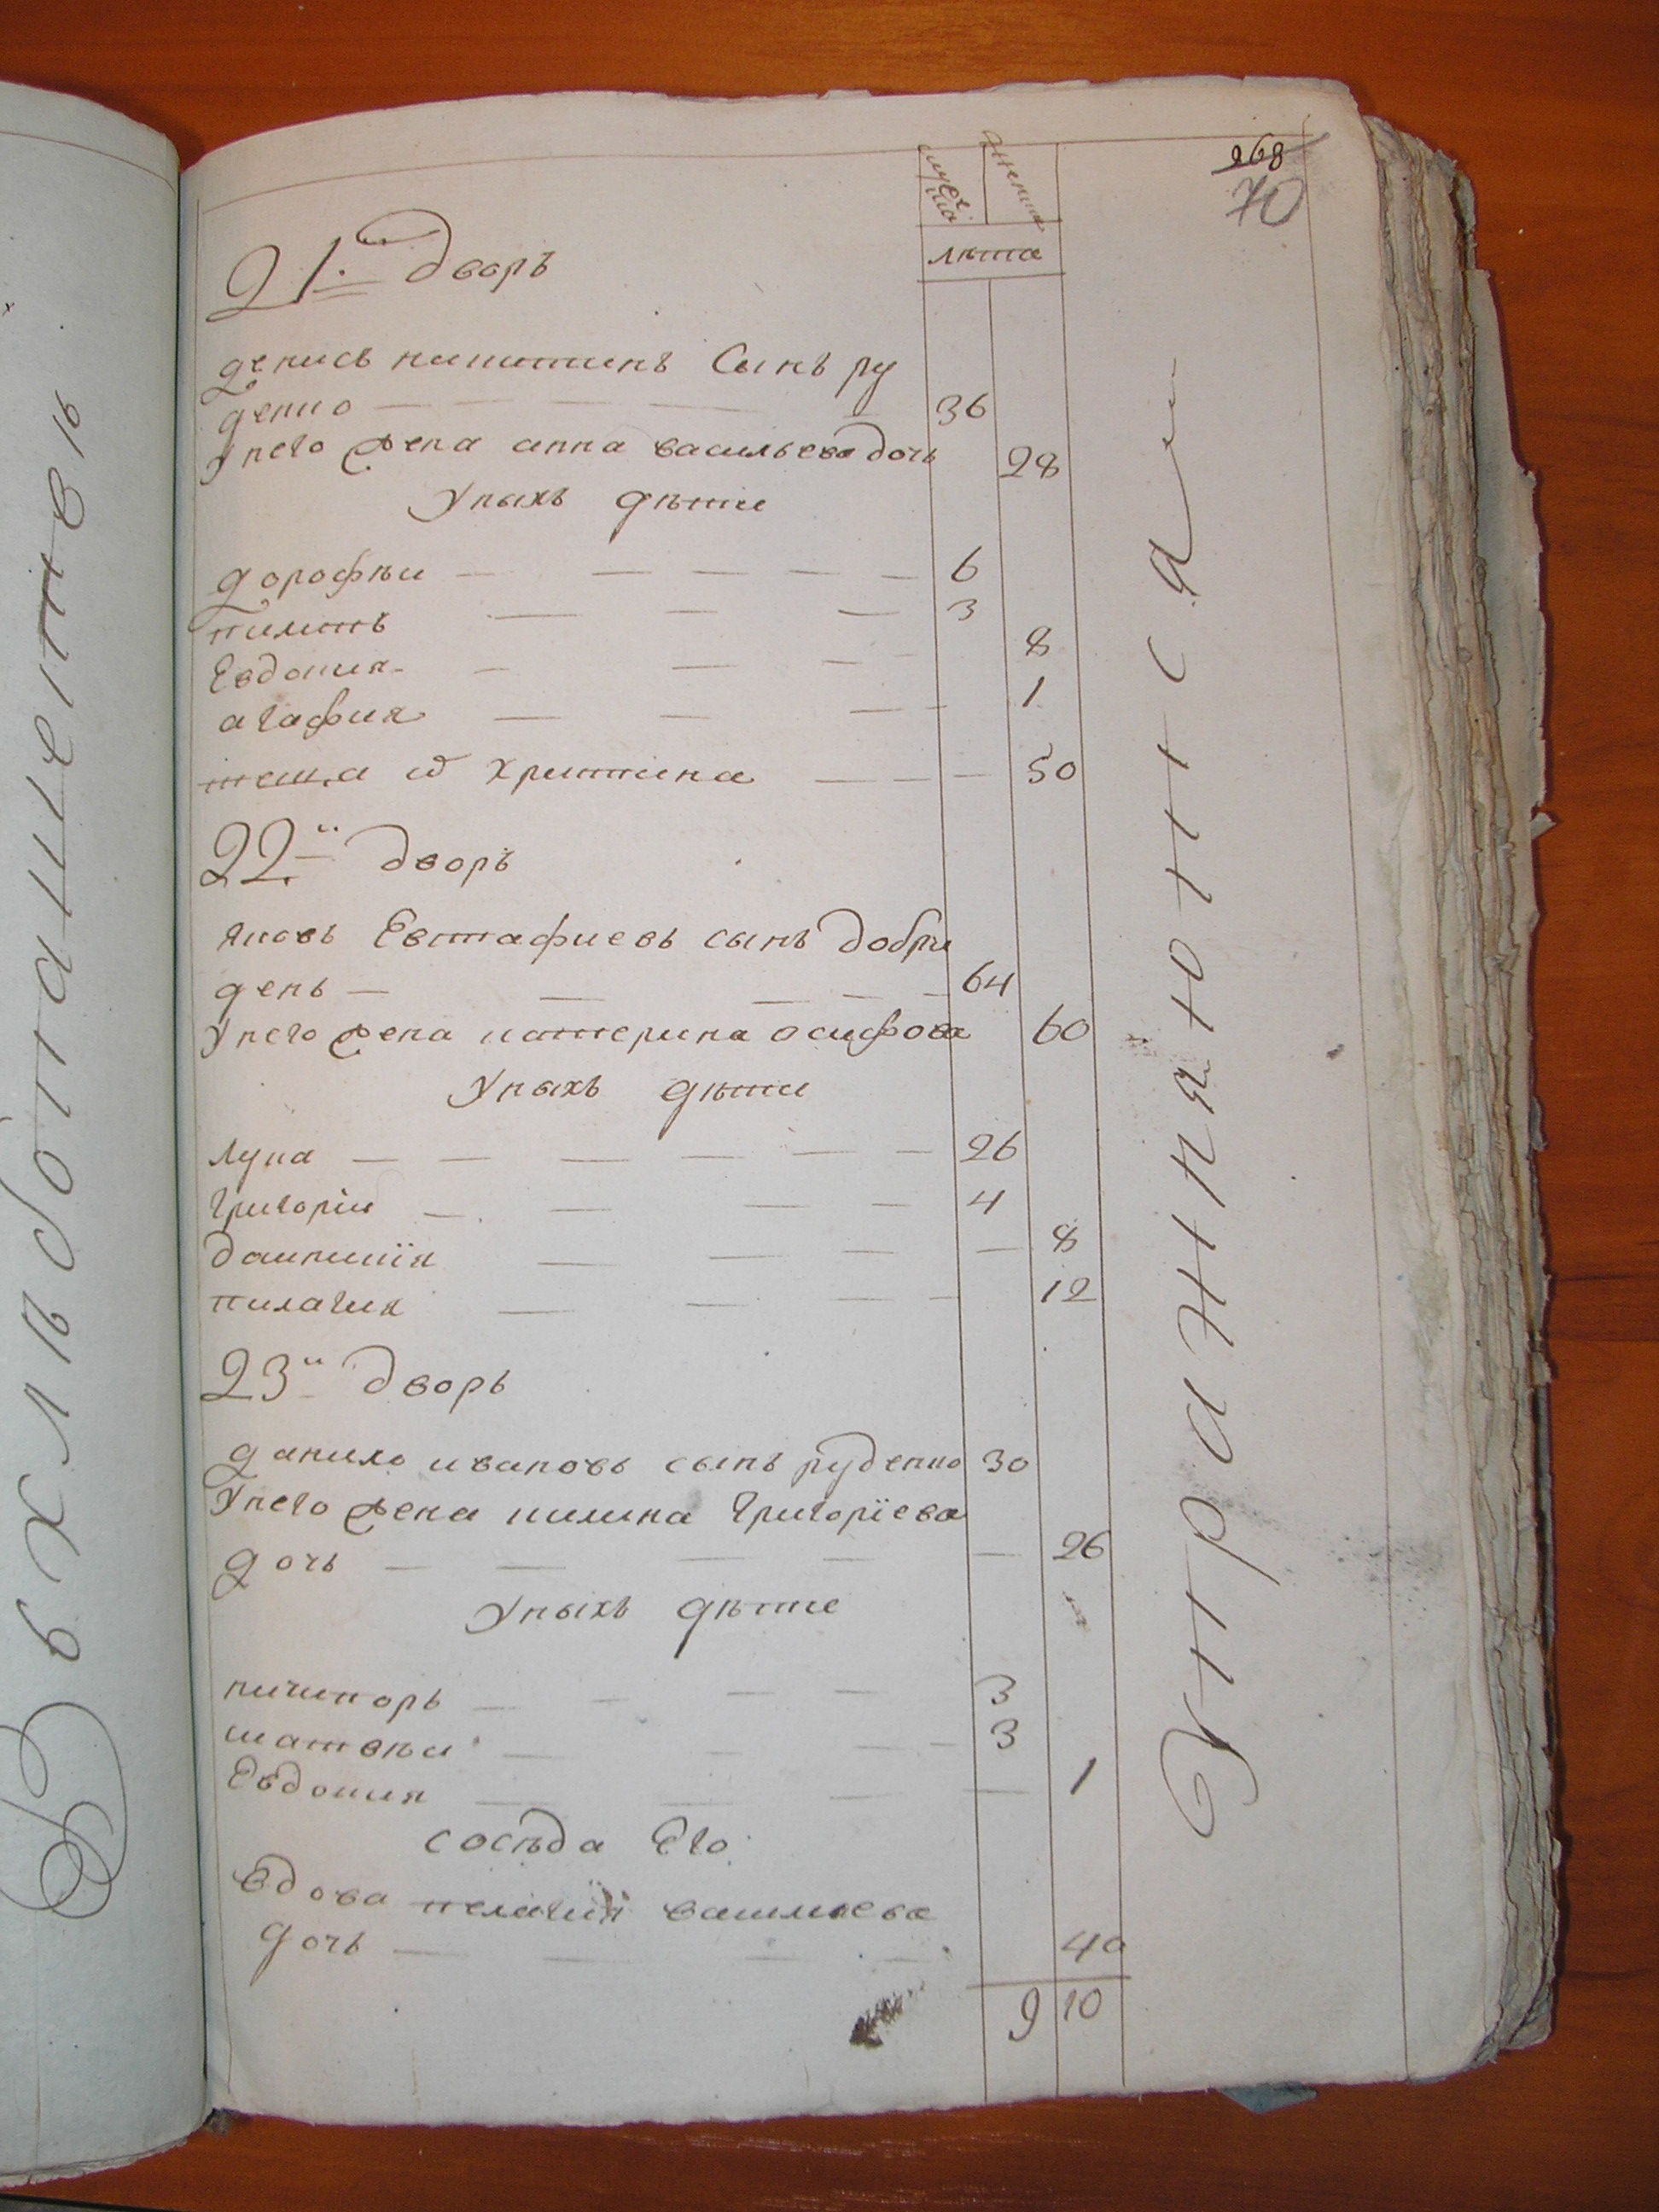 268
70
лѣта
21.й дворъ
денисъ никитинъ Сынъ ру
денко — — — — — 36
У него жена анна васильева дочь 28
У ныхъ дѣти
дорофѣи — — — — — 6
пилипъ — — — 3
Евдокия — — — 8
агафия — — — — 1
теща ей христина — — — 50
22.й дворъ
яковъ Евтафиевъ сынъ добри
день — — — — — 64
У него жена катерина осифова 60
У ныхъ дѣти
лука — — — — — — 26
григорїи — — — — 4
домникїя — — — — 8
пилагия — — — — 12
23й дворъ
данило ивановъ сынъ руденко 30
У него жена килина григорїева
дочь — — — — — 26
У ныхъ дѣти
ничипоръ — — — — 3
матвѣи — — — — 3
Евдокия — — — — 1
сосѣда Его
Вдова пелагия василиева
дочь — — — — 40
9 10
В хлѣбопашествѣ